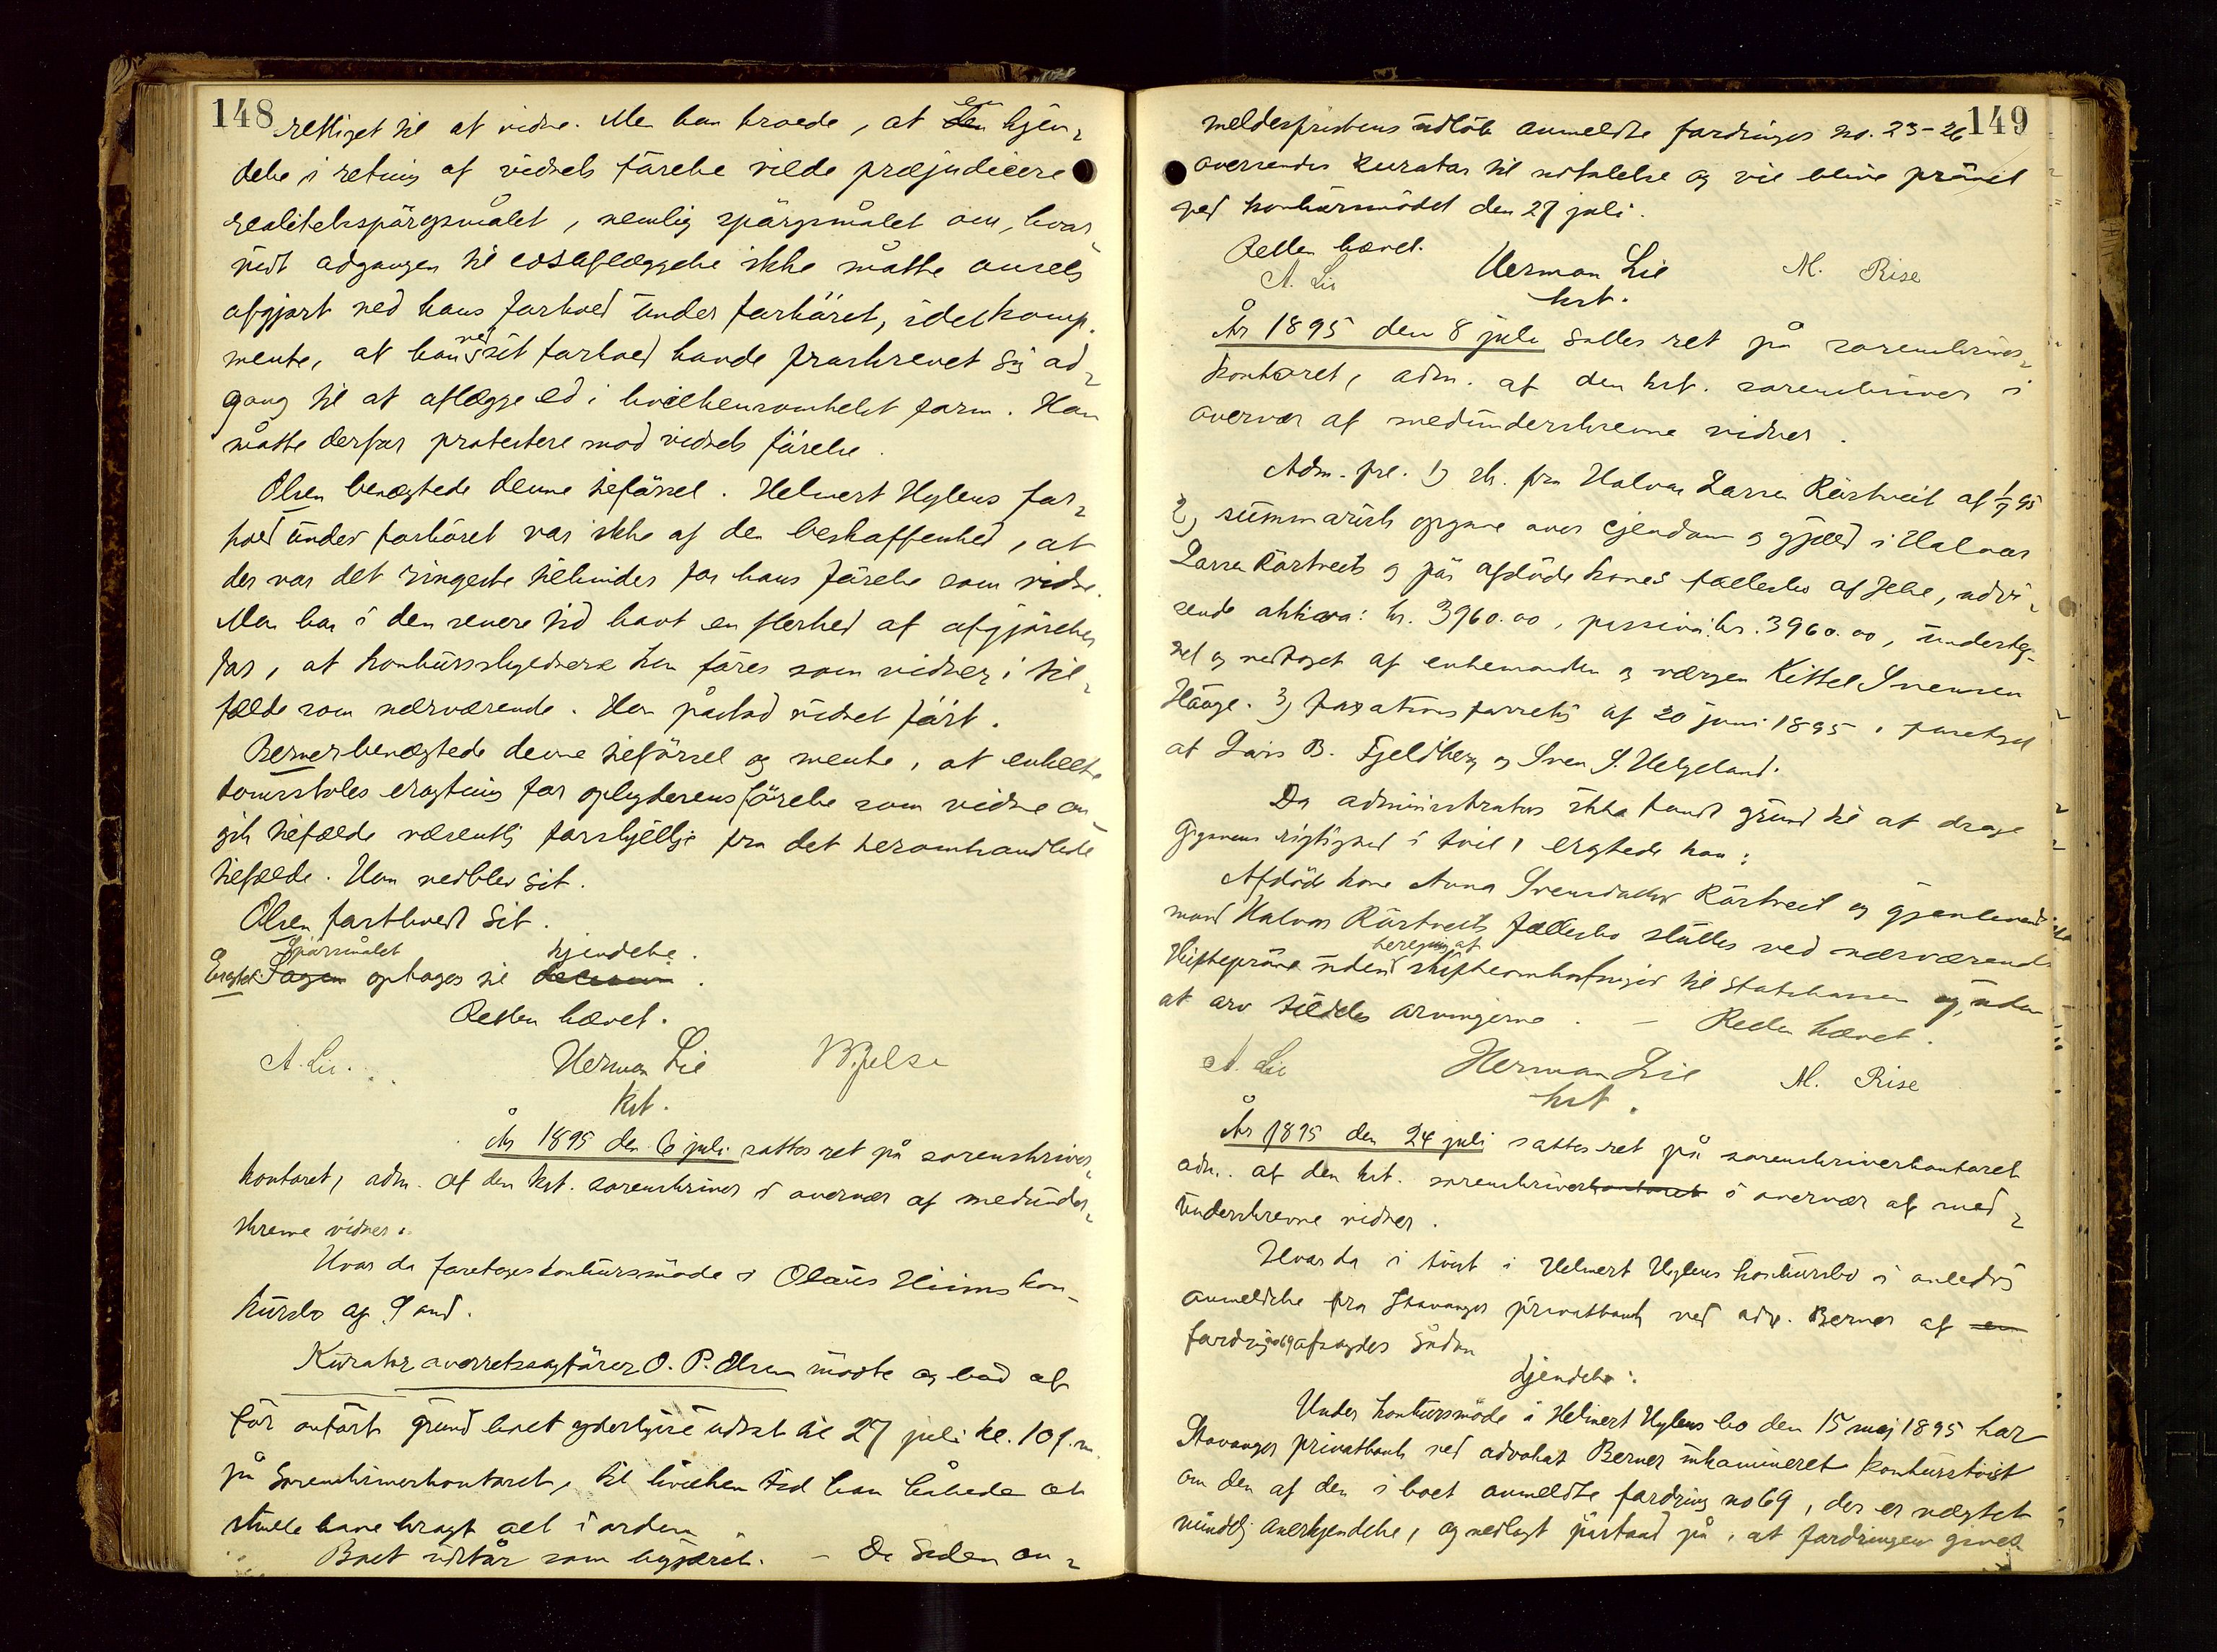 148
rettiget til at vidne. Men han troede, at en kjen-
delse i retning af vidnets førelse vilde præjudicere
realitetsspørgsmålet, nemlig spørgsmålet om, hvor-
vidt adgangen til edsaflæggelse ikke måtte ansees
afgjort ved hans forhold under forhøret, idet komp.
mente, at han ved sit forhold havde fraskrevet sig ad-
gang til at aflægge ed i hvilkensomhelst form. Han
måtte derfor protestere mod vidnets førelse.
Olsen benægtede denne tilførsel. Helmert Hylens for-
hold under forhøret var ikke af den beskaffenhed, at
der var det ringeste tilhinder for hans førelse som vidne.
Man har i den senere tid havt en flerhed af afgjørelser
for, at konkursskyldnere kan føres som vidner i til-
fælde som nærværende. Han påstod vidnet ført.
Berner benægtede denne tilførsel og mente, at enkelte
domstoles eragtning for opbyderens førelse som vidne an-
gik tilfælde væsentlig forskjellige fra det heromhandlede
tilfælde. Han vedblev sit.
Olsen fastholdt sit.
Spørsmålet kjendelse.
Eragtet: Sagen optages til decision.
Retten hævet.
A. Lie. Herman Lie W. Jelsa
kst.
År 1895 den 6 juli sattes ret på sorenskriver-
kontoret, adm. af den kst. sorenskriver i overvær af medunder-
skrevne vidner.
Hvor da foretoges konkursmøde i Olaus Hiims kon-
kursbo af Sand.
Kurator overretssagfører O. P. Olsen mødte og bad af
før anført grund boet yderligere udsat til 27 juli kl. 10 f.m.
på sorenskriverkontoret, til hvilken tid han håbede at
skulle have bragt alt i orden.
Boet udstår som begjæret. – De siden an-
149
meldesfristens udløb anmeldte fordringer no. 23-26
oversendes kurator til udtalelse og vil blive prøvet
ved konkursmødet den 27 juli.
Retten hævet.
A. Lie Herman Lie M. Rise
kst.
År 1895 den 8 juli sattes ret på sorenskriver-
kontoret, adm. af den kst. sorenskriver i
overvær af medunderskrevne vidner.
Adm. frl. 1) sk. fra Halvor Larsen Rørtveit af 1/7 95
2) summarisk opgave over eiendom og gjæld i Halvor
Larsen Rørtveits og på afdøde kones fællesbo af Jelse, udvi-
sende aktiva: kr. 3960.00, passiva: kr. 3960.00, underteg-
net og vedtaget af enkemanden og værgen Kittel Svensen
Hauge. 3) taxationsforretn. af 20 juni 1895, foretaget
af Lars B. Fjeldberg og Sven S. Helgeland.
Da administrator ikke fandt grund til at drage
opgavens rigtighed i tvil, eragtede han:
Afdøde kone Anna Svensdatter Rørtveit og gjenlevende
mand Halvor Rørtveits fællesbo sluttes ved nærværende
beregning af
skifteprøve uden skifteomkostninger til statskassen og uden
at arv tilddeles arvingerne. – Retten hævet.
A. Lie Herman Lie M. Rise
kst.
År 1895 den 24 juli sattes ret på sorenskriverkontoret
adm. af den kst. sorenskriverkontoret i overvær af med-
underskrevne vidner.
Hvor da i tvist i Helmert Hylens konkursbo i anledn.
anmeldelse fra Stavanger privatbank ved adv. Berner af en
fordring no 69 afsagdes sådan
kjendelse:
Under konkursmøde i Helmert Hylens bo den 15 maj 1895 har
Stavanger privatbank ved advokat Berner inkamineret konkurstvist
om den af den i boet anmeldte fordring no 69, der er nægtet
mindelig anerkjendelse, og nedlagt påstand på, at fordringen gives